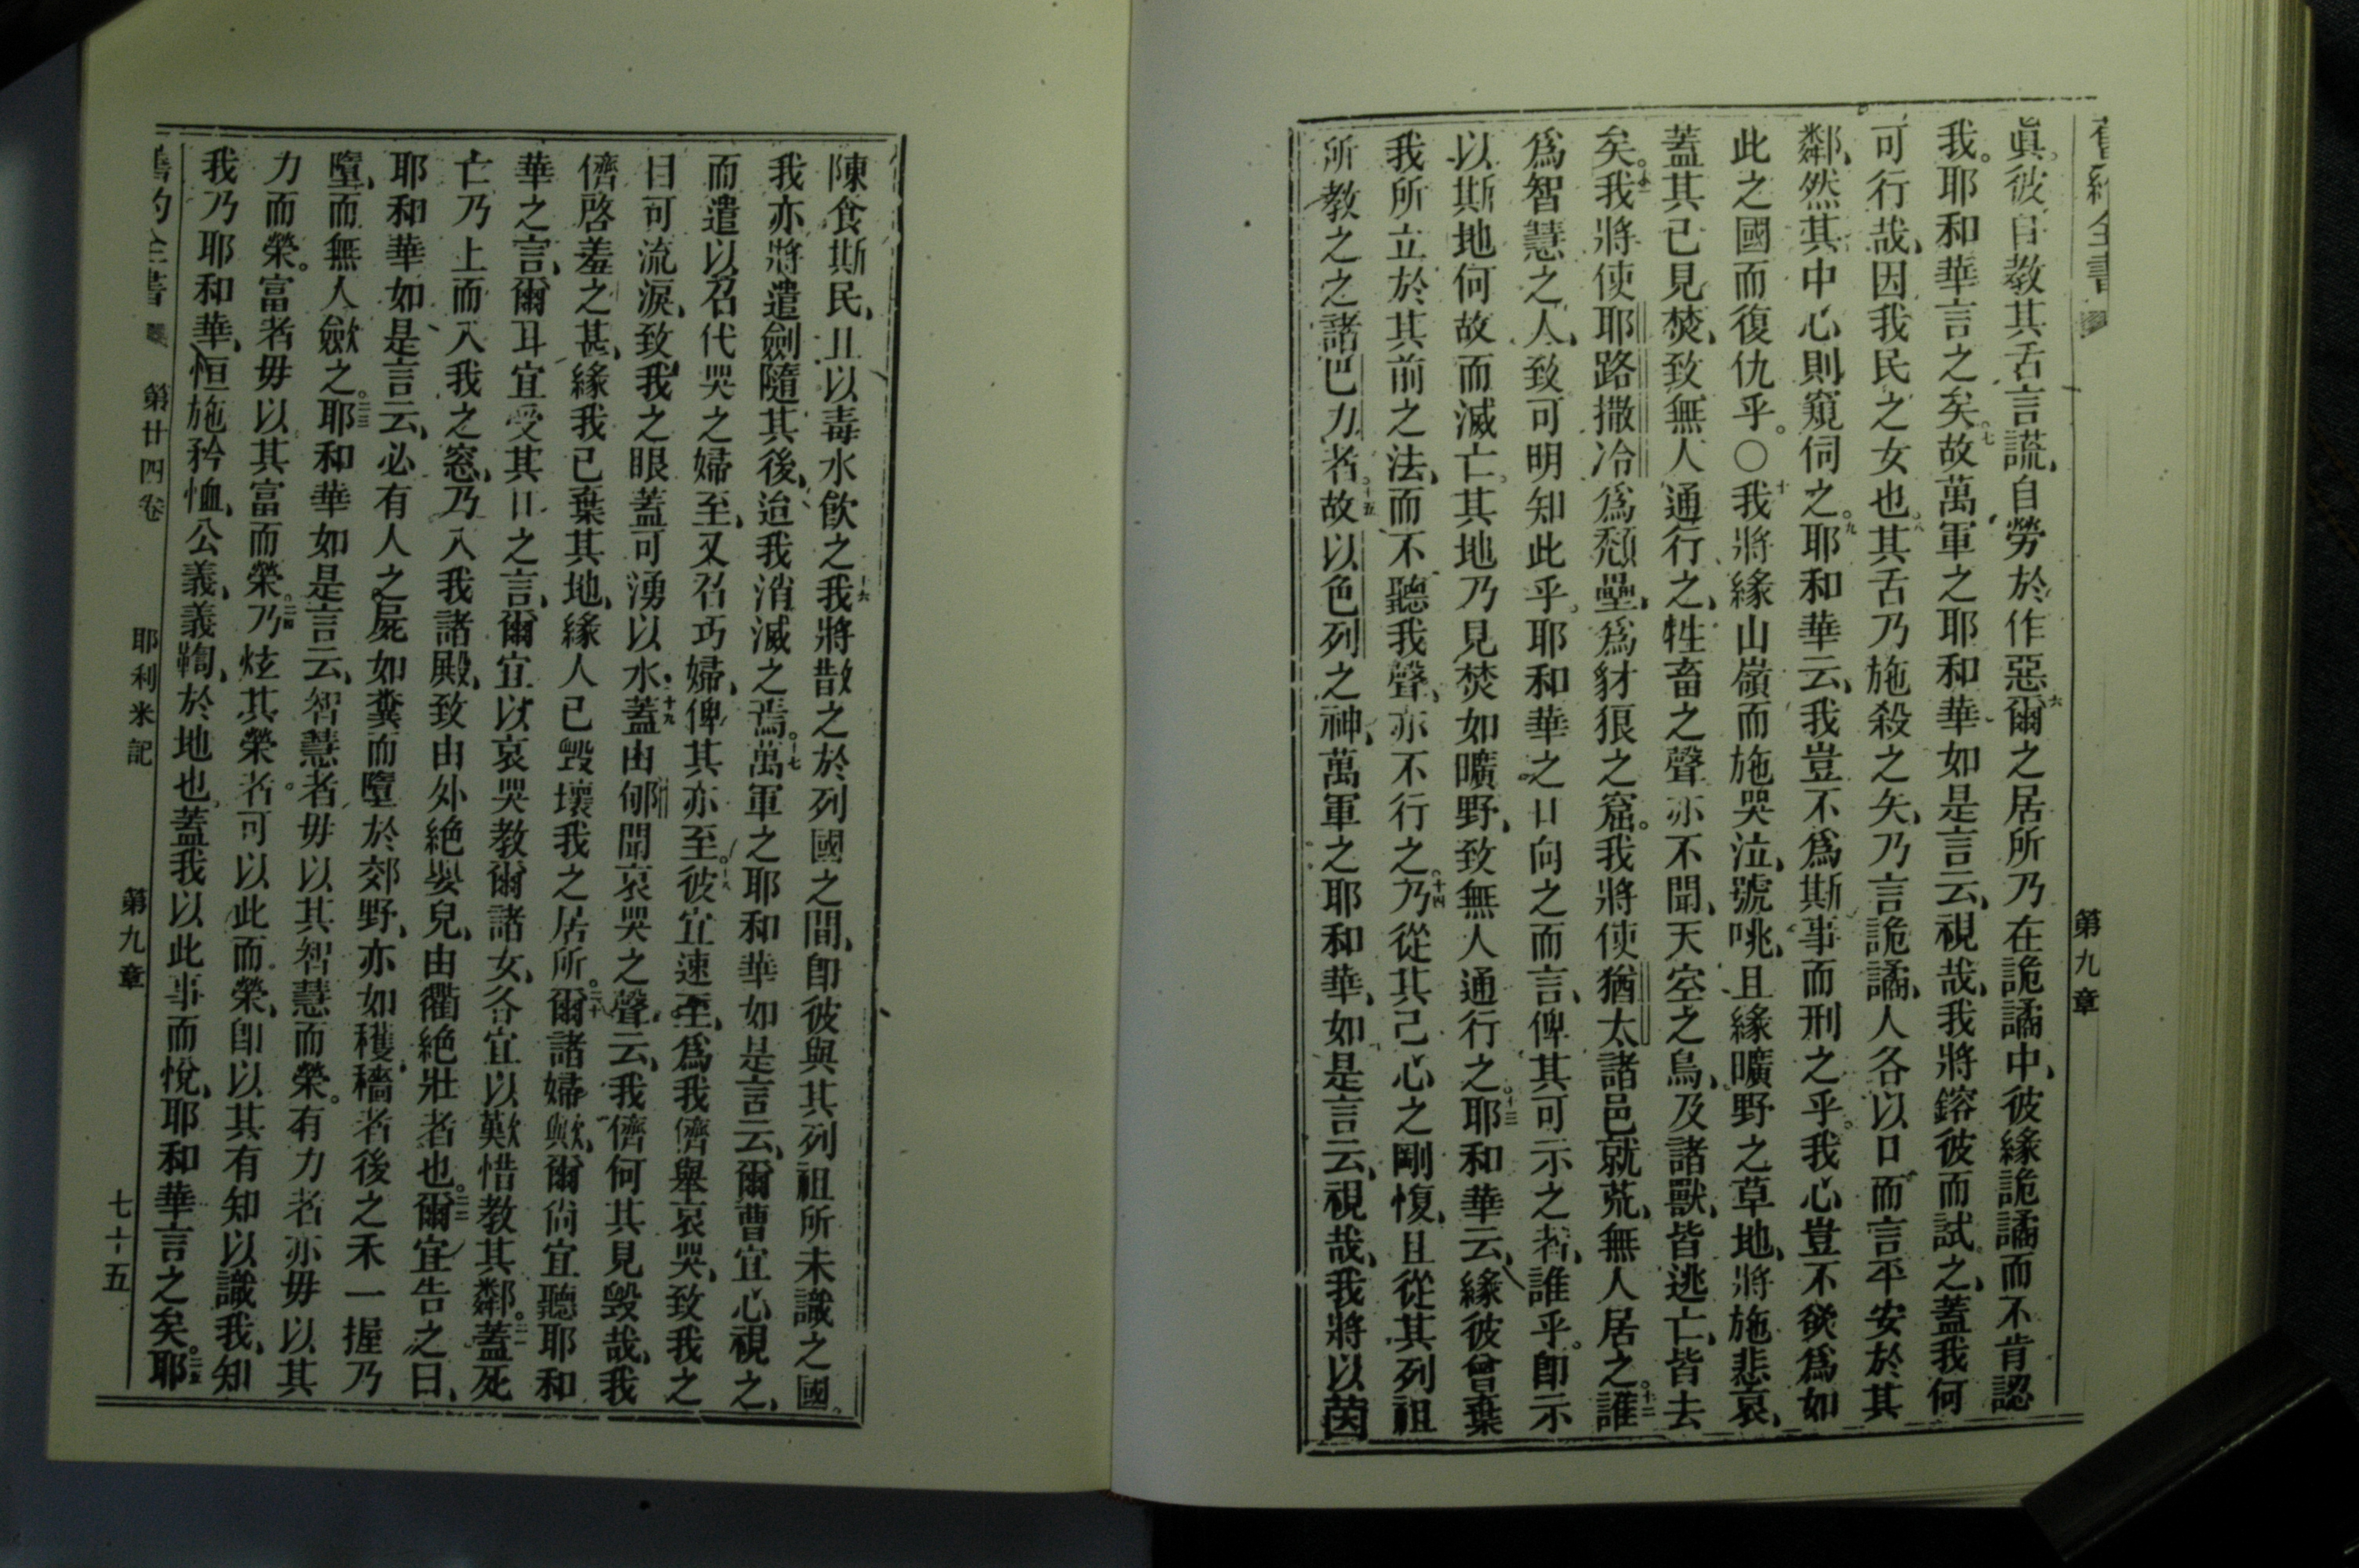 舊約全書 第九章
眞。彼自教其舌言謊、自勞於作惡。六爾之居所乃在詭譎中、彼緣詭譎而不肯認
我。耶和華言之矣。七故萬軍之耶和華如是言云、視哉、我將鎔彼而試之、蓋我何
可行哉、因我民之女也。八其舌乃施殺之矢、乃言詭譎、人各以口而言平安於其
鄰、然其中心則窺伺之。九耶和華云、我豈不爲斯事而刑之乎。我心豈不欲爲如
此之國而復仇乎。〇十我將緣山嶺而施哭泣、號咷、且緣曠野之草地、將施悲哀、
蓋其已見焚、致無人通行之、牲畜之聲亦不聞、天空之鳥、及諸獸、皆逃亡、皆去
矣。十一我將使耶路撒冷爲頹壘、爲豺狠之窟。我將使猶太諸邑就荒、無人居之。十二誰
爲智慧之人、致可明知此乎。耶和華之口向之而言、俾其可示之者、誰乎。卽示
以斯地何故而滅亡。其地乃見焚如曠野、致無人通行之。十三耶和華云、緣彼曾棄
我所立於其前之法、而不聽我聲、亦不行之。十四乃從其己心之剛愎、且從其列祖
所教之之諸巴力者。十五故以色列之神、萬軍之耶和華、如是言云、視哉、我將以茵
陳食斯民、且以毒水飮之。十六我將散之於列國之間、卽彼與其列祖所未識之國。
我亦將遣劍隨其後、迨我消滅之焉。十七萬軍之耶和華如是言云、爾曹宜心視之、
而遣以召代哭之婦至、又召巧婦、俾其亦至。十八彼宜速至、爲我儕舉哀哭、致我之
目可流淚、致我之眼蓋可湧以水。十九蓋由郇聞哀哭之聲云、我儕何其見毀哉、我
儕啓羞之甚、緣我已棄其地、緣人已毀壞我之居所。二十爾諸婦歟、爾尙宜聽耶和
華之言、爾耳宜受其口之言、爾宜以哀哭教爾諸女、各宜以歎惜教其鄰。二一蓋死
亡乃上而入我之窓、乃入我諸殿、致由外絕嬰兒、由衢絕壯者也。二二爾宜告之曰、
耶和華如是言云、必有人之屍如糞而墮於郊野、亦如穫穡者後之禾一握乃
墮、而無人斂之。二三耶和華如是言云、智慧者毋以其智慧而榮。有力者亦毋以其
力而榮。富者毋以其富而榮。二四乃炫其榮者、可以此而榮、卽以其有知以識我、知
我乃耶和華、恒施矜恤、公義、義鞫、於地也。蓋我以此事而悅、耶和華言之矣。二五耶
舊約全書 第廿四卷 耶利米記 第九章 七十五